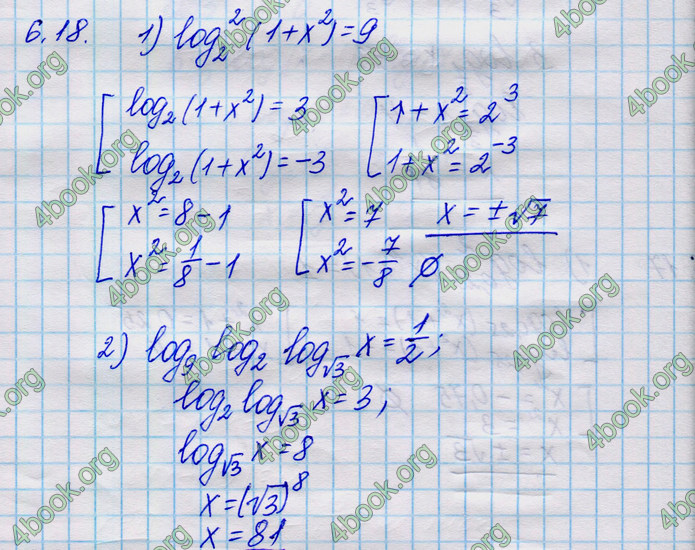 6.18. 1) log₂²(1+x²)=9
[ log₂(1+x²)=3 [ 1+x²=2³
log₂(1+x²)=-3 1+x²=2⁻³
[ x²=8-1 [ x²=7 x=±√7
x²=1/8-1 x²=-7/8 ∅
2) log₉ log₂ log_√3 x=1/2;
log₂ log_√3 x=3;
log_√3 x=8
x=(√3)⁸
x=81
4book.org